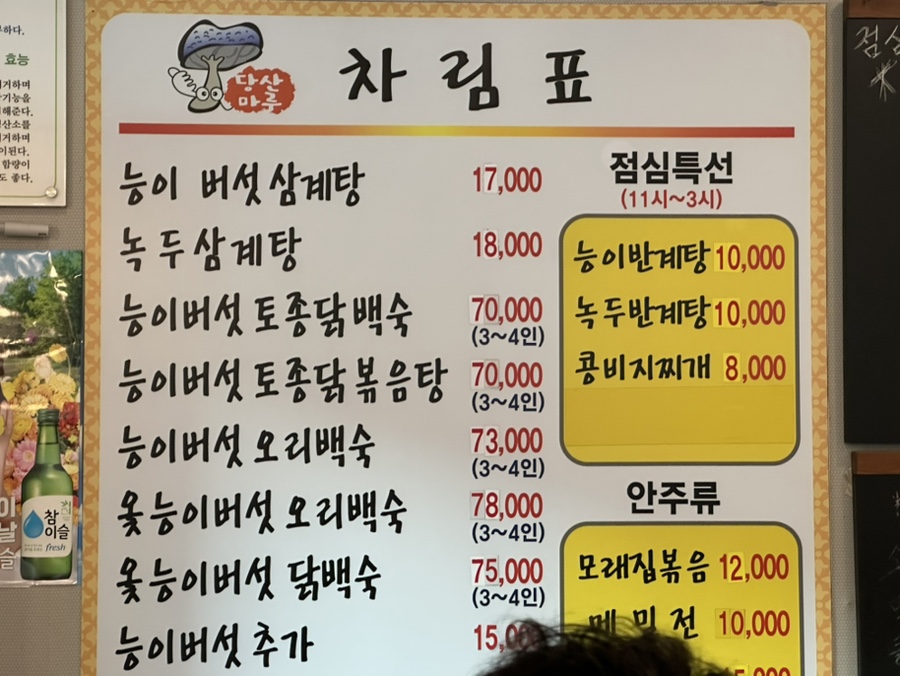 당산
마루
차림표
능이 버섯 삼계탕 17,000
녹두삼계탕 18,000
능이버섯 토종닭백숙 70,000
(3~4인)
능이버섯 토종닭볶음탕 70,000
(3~4인)
능이버섯 오리백숙 73,000
(3~4인)
옻능이버섯 오리백숙 78,000
(3~4인)
옻능이버섯 닭백숙 75,000
(3~4인)
능이버섯 추가
점심특선
(11시~3시)
능이반계탕 10,000
녹두반계탕 10,000
콩비지찌개 8,000
안주류
모래집볶음 12,000
메밀전 10,000
효능
참
이슬
fresh
점심